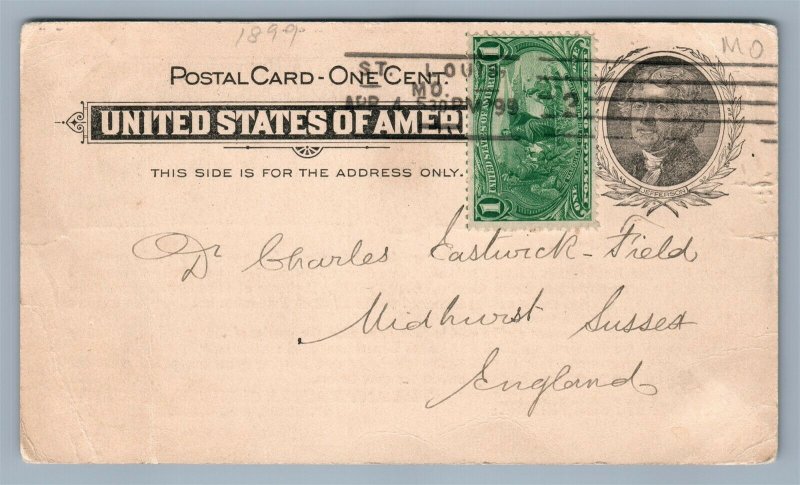 1899
MO
ST. LOUIS
MO.
APR 4 5 30 PM '99
POSTAL CARD - ONE CENT.
UNITED STATES OF AMERI
THIS SIDE IS FOR THE ADDRESS ONLY.
1
UNITED STATES OF AMERICA
1
ONE
JEFFERSON
Dr Charles Eastwick-Field
Midhurst Sussex
England